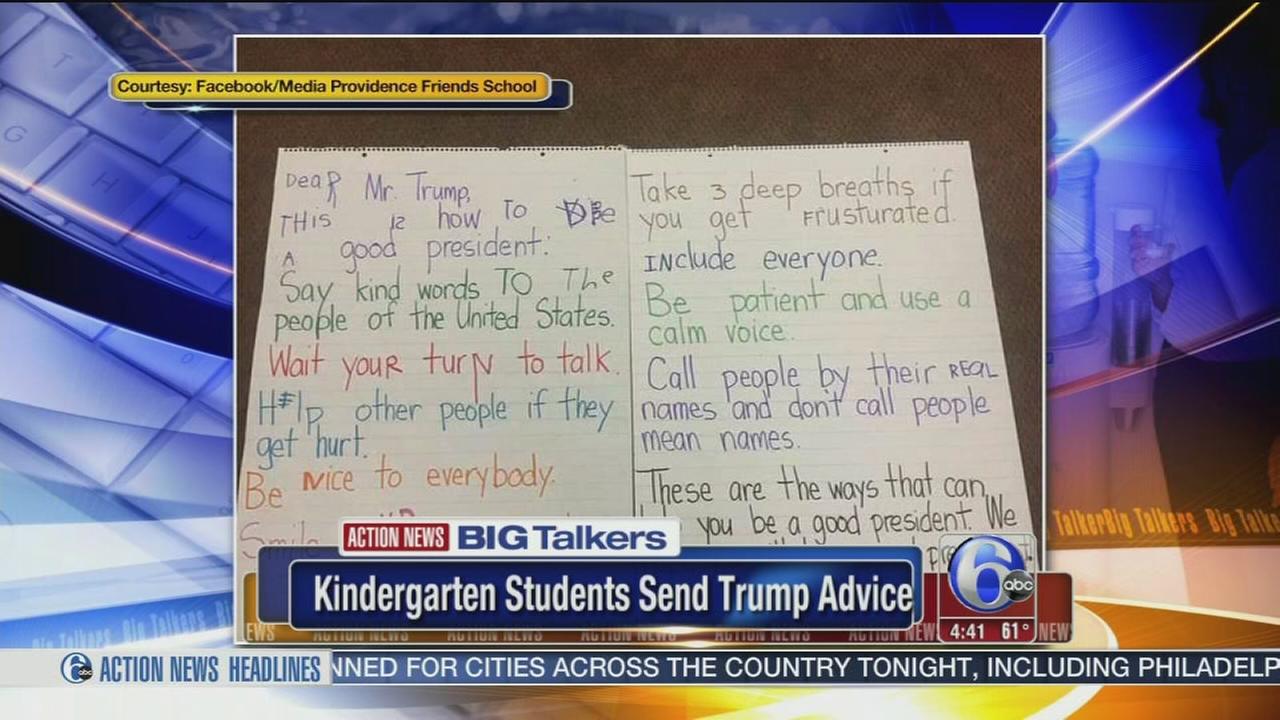 Courtesy: Facebook/Media Providence Friends School
DeaR Mr. Trump,
THIS is how To Be
A good president:
Say kind words TO The
people of the United States.
Wait youR turN to talk.
HElp other people if they
get hurt.
Be Nice to everybody.
Smile
Take 3 deep breaths if
you get FRusturated.
INclude everyone.
Be patient and use a
calm voice.
Call people by their REAL
names and don't call people
mean names.
These are the ways that can
you be a good president. We
ACTION NEWS BIG Talkers
Kindergarten Students Send Trump Advice
6 abc
4:41 61°
EWS ACTION NEWS ACTION NEWS ACTION NEWS ACTION NEWS ACTION NEWS NEW
Big Talkers Big Talkers Big
TalkerBig Talkers Big Talk
6 abc ACTION NEWS HEADLINES NNED FOR CITIES ACROSS THE COUNTRY TONIGHT, INCLUDING PHILADELP